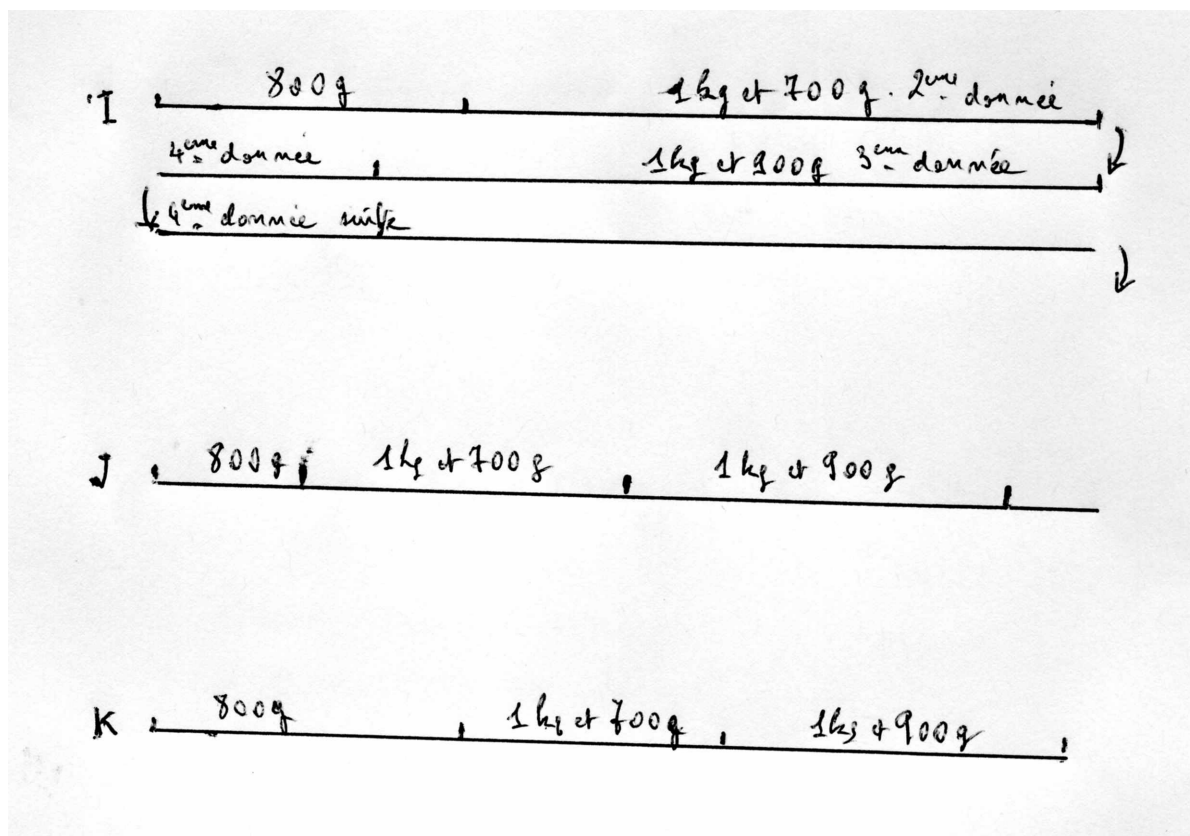 I 800g 1kg et 700g. 2ème donnée
4ème donnée 1kg et 900g 3ème donnée
4ème donnée suite
J 800g 1kg et 700g 1kg et 900g
K 800g 1kg et 700g 1kg et 900g